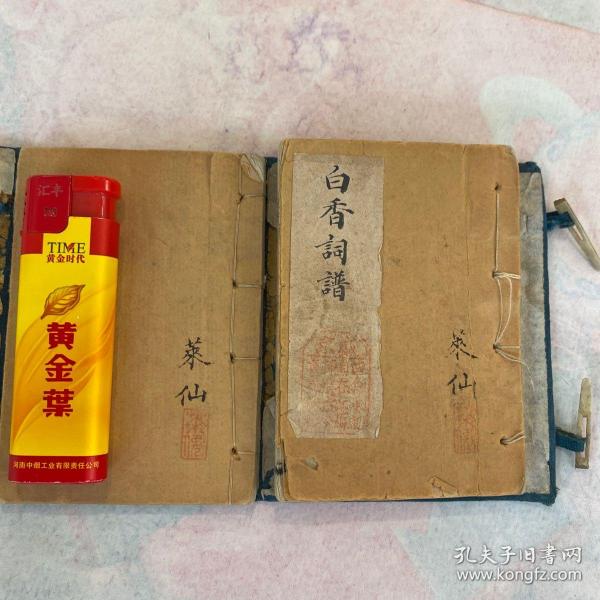 汇丰
TIME
黄金时代
黄金葉
河南中烟工业有限责任公司
菉仙
白香詞譜
菉仙
孔夫子旧书网
www.kongfz.com